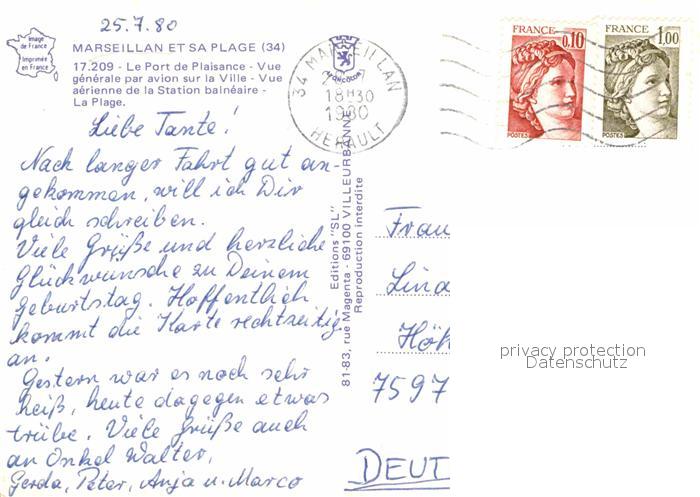 25.7.80
Image
de France
Imprimée
en France
MARSEILLAN ET SA PLAGE (34)
17.209 - Le Port de Plaisance - Vue
générale par avion sur la Ville - Vue
aérienne de la Station balnéaire -
La Plage.
Liebe Tante!
Nach langer Fahrt gut an-
gekommen, will ich Dir
gleich schreiben.
Viele Grüße und herzliche
Glückwünsche zu Deinem
Geburtstag. Hoffentlich
kommt die Karte rechtzeitig
an.
Gestern war es noch sehr
heiß, heute dagegen etwas
trübe. Viele Grüße auch
an Onkel Walter,
Gerda, Peter, Anja u. Marco
Editions "SL"
81-83, rue Magenta - 69100 VILLEURBANNE
Reproduction interdite
34 MARSEILLAN
18H30
1980
HERAULT
FRANCE
0,10
POSTES
FRANCE
1,00
POSTES
Frau
Lina
Höh
7597
DEUT
privacy protection
Datenschutz